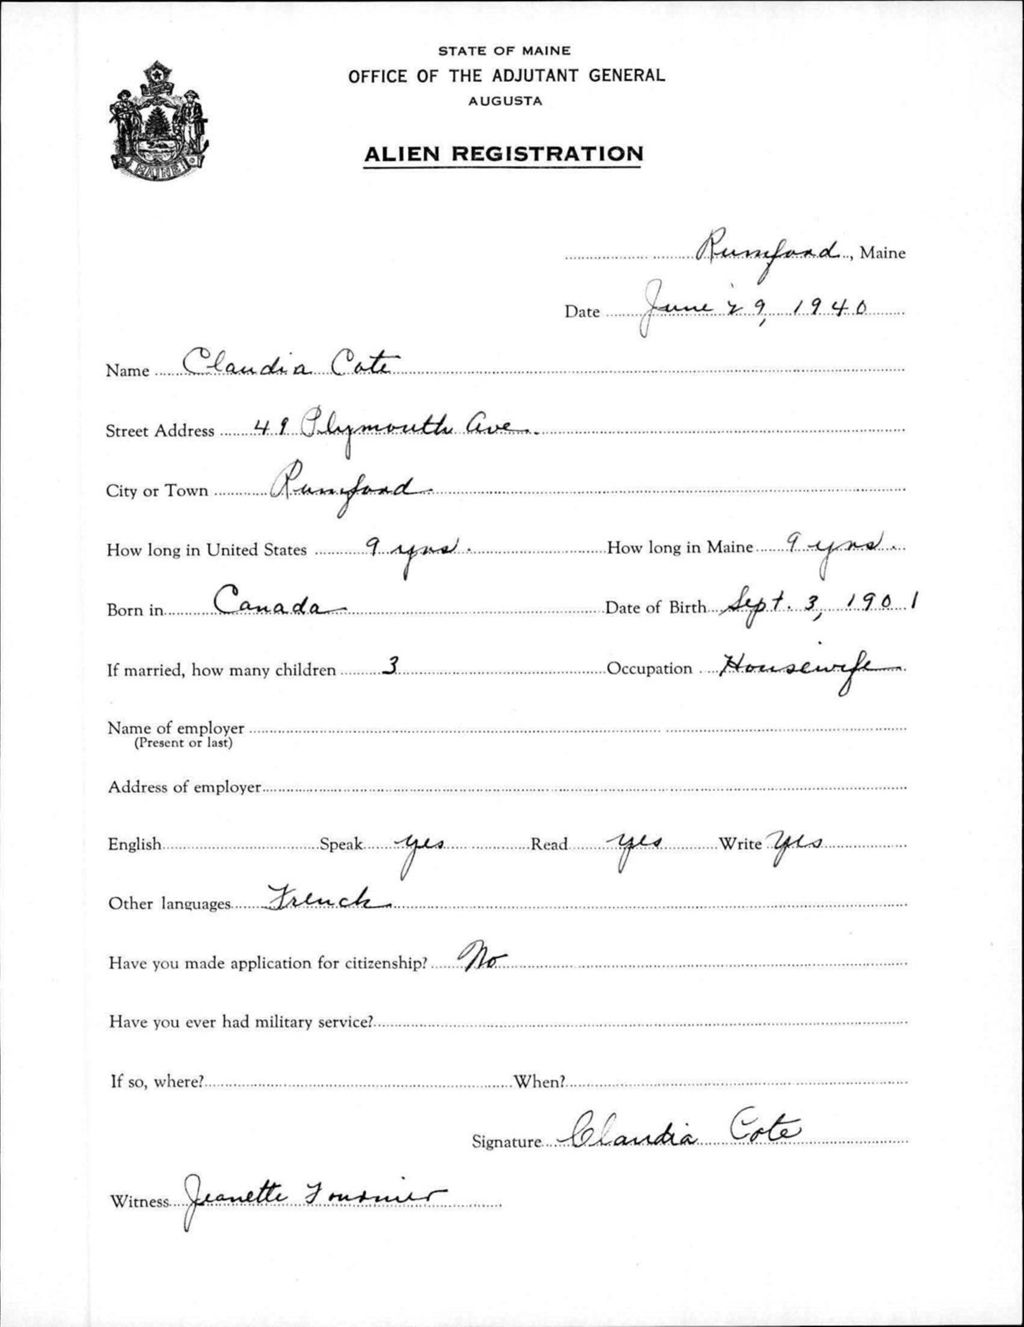 STATE OF MAINE
OFFICE OF THE ADJUTANT GENERAL
AUGUSTA
ALIEN REGISTRATION
MAINE
Rumford, Maine
Date June 29, 1940
Name Claudia Cote
Street Address 49 Plymouth Ave.
City or Town Rumford
How long in United States 9 yrs. How long in Maine 9 yrs.
Born in Canada Date of Birth Sept. 3, 1901
If married, how many children 3 Occupation Housewife
Name of employer
(Present or last)
Address of employer
English Speak yes Read yes Write Yes
Other languages French
Have you made application for citizenship? No
Have you ever had military service?
If so, where? When?
Signature Claudia Cote
Witness Jeanette Fournier